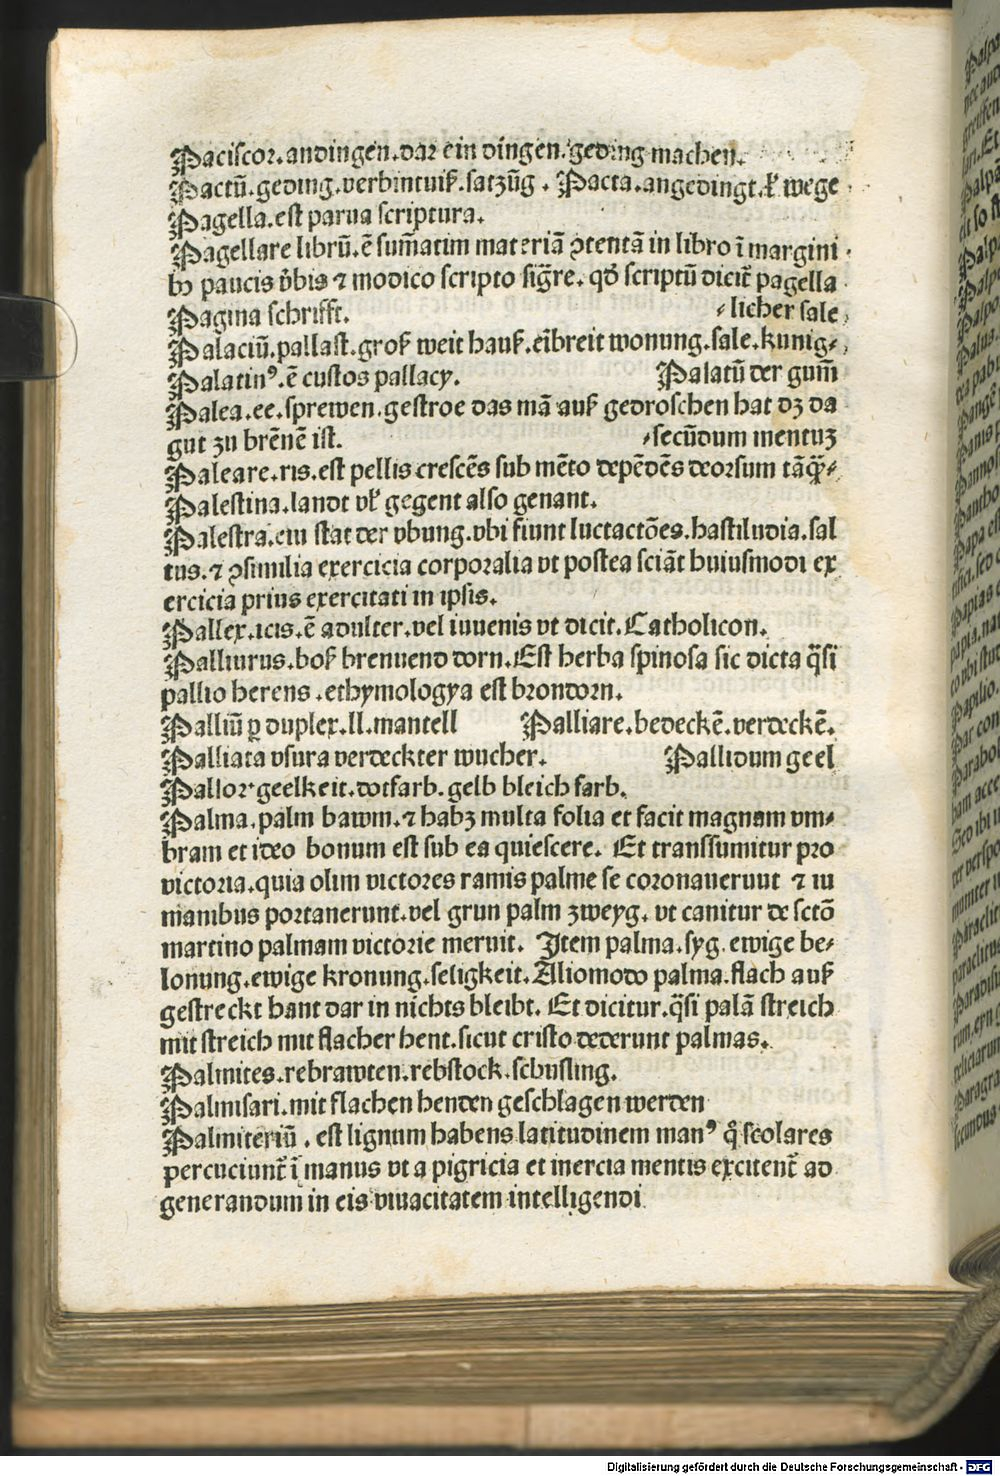 Paciscor.andingen.dar ein dingen.geding machen.
Pactū.geding.verbintniß.satzūg. Pacta.angedingt.ꝉ wege
Pagella.est parua scriptura.
Pagellare librū.ē sum̄atim materiā ꝯtentā in libro ī margini
bꝫ paucis v̄bis ⁊ modico scripto sig̅re. qđ scriptū dicit᷑ pagella
Pagina schrifft. ⸗licher sale
Palaciū.pallast.groß weit hauß.eībreit wonung.sale.kunig⸗
Palatinꝰ.ē custos pallacy. Palatū der gum̄
Palea.ee.sprewen.gestroe das mā auß gedroschen hat dz da
gut zu brēnē ist. ⸗secūdum mentuꝫ
Paleare.ris.est pellis crescēs sub mēto depēdēs deorsum tāq̄⸗
Palestina.landt vn̄ gegent also genant.
Palestra.ein stat der vbung.vbi fiunt luctactōes.hastiludia.sal
tus.⁊ ꝯsimilia exercicia corporalia vt postea sciāt huiusmodi ex
ercicia prius exercitati in ipsis.
Pallex.icis.ē adulter.vel iuuenis vt dicit.Catholicon.
Palliurus.boß brennend dorn.Est herba spinosa sic dicta q̄si
pallio herens.ethymologya est brondorn.
Palliū ꝑ duplex.ll.mantell Palliare.bedeckē.verdeckē.
Palliata vsura verdeckter wucher. Pallidum geel
Pallor geelkeit.dotfarb.gelb bleich farb.
Palma.palm bawm.⁊ habꝫ multa folia et facit magnam vm⸗
bram et ideo bonum est sub ea quiescere. Et transsumitur pro
victoria.quia olim victores ramis palme se coronauerunt ⁊ in
manibus portanerunt.vel grun palm zweyg. vt canitur de sctō
martino palmam victorie meruit. Item palma.syg.ewige be⸗
lonung.ewige kronung.seligkeit.Aliomodo palma.flach auß
gestreckt hant dar in nichts bleibt. Et dicitur.q̄si palā streich
mit streich mit flacher hent.sicut cristo dederunt palmas.
Palmites.rebrawten.rebstock.schusling.
Palmisari.mit flachen henden geschlagen werden
Palmiteriū.est lignum habens latitudinem manꝰ q̄ scolares
percuciunt᷑ ī manus vt a pigricia et inercia mentis excitent᷑ ad
generandum in eis viuacitatem intelligendi
Digitalisierung gefördert durch die Deutsche Forschungsgemeinschaft - DFG